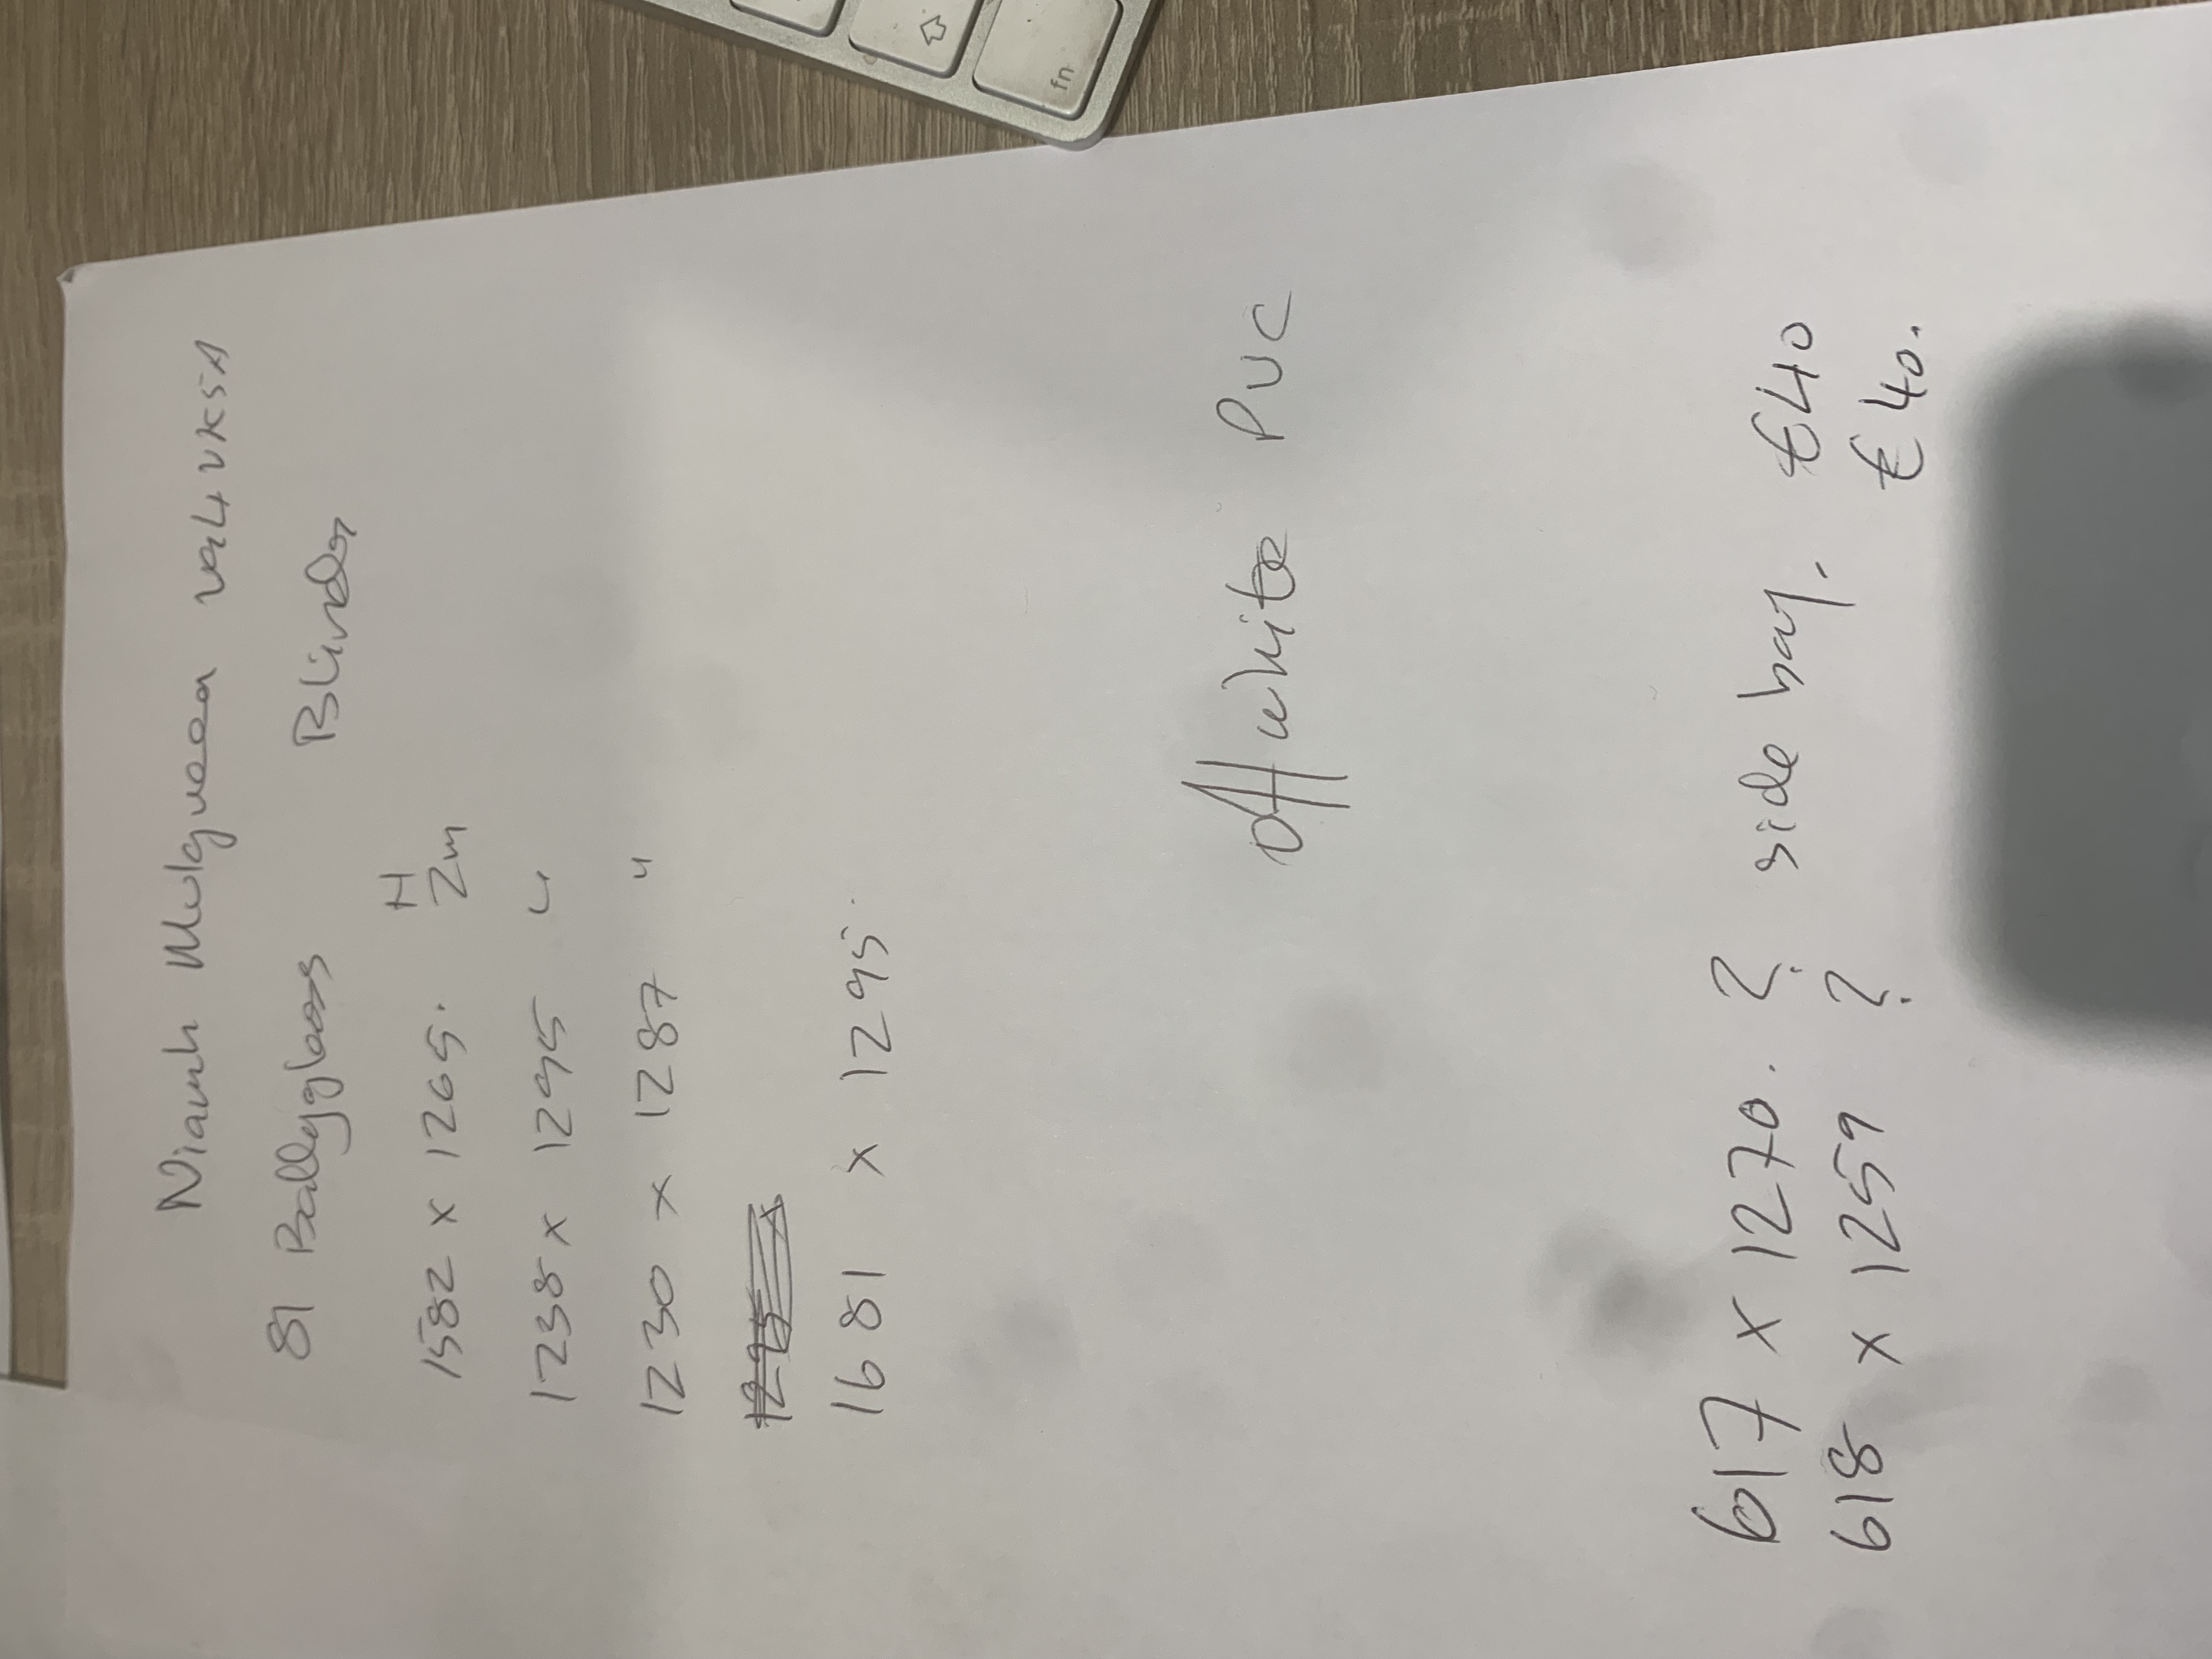 Niamh Mulgueen
81 Ballyglass Blinds
H
1582 x 1265. 2m
1238 x 1295 "
1230 x 1287 "
1681 x 1295.
Off white PVC
617 x 1270. ? side bay. €40
618 x 1259 ? €40.
fn